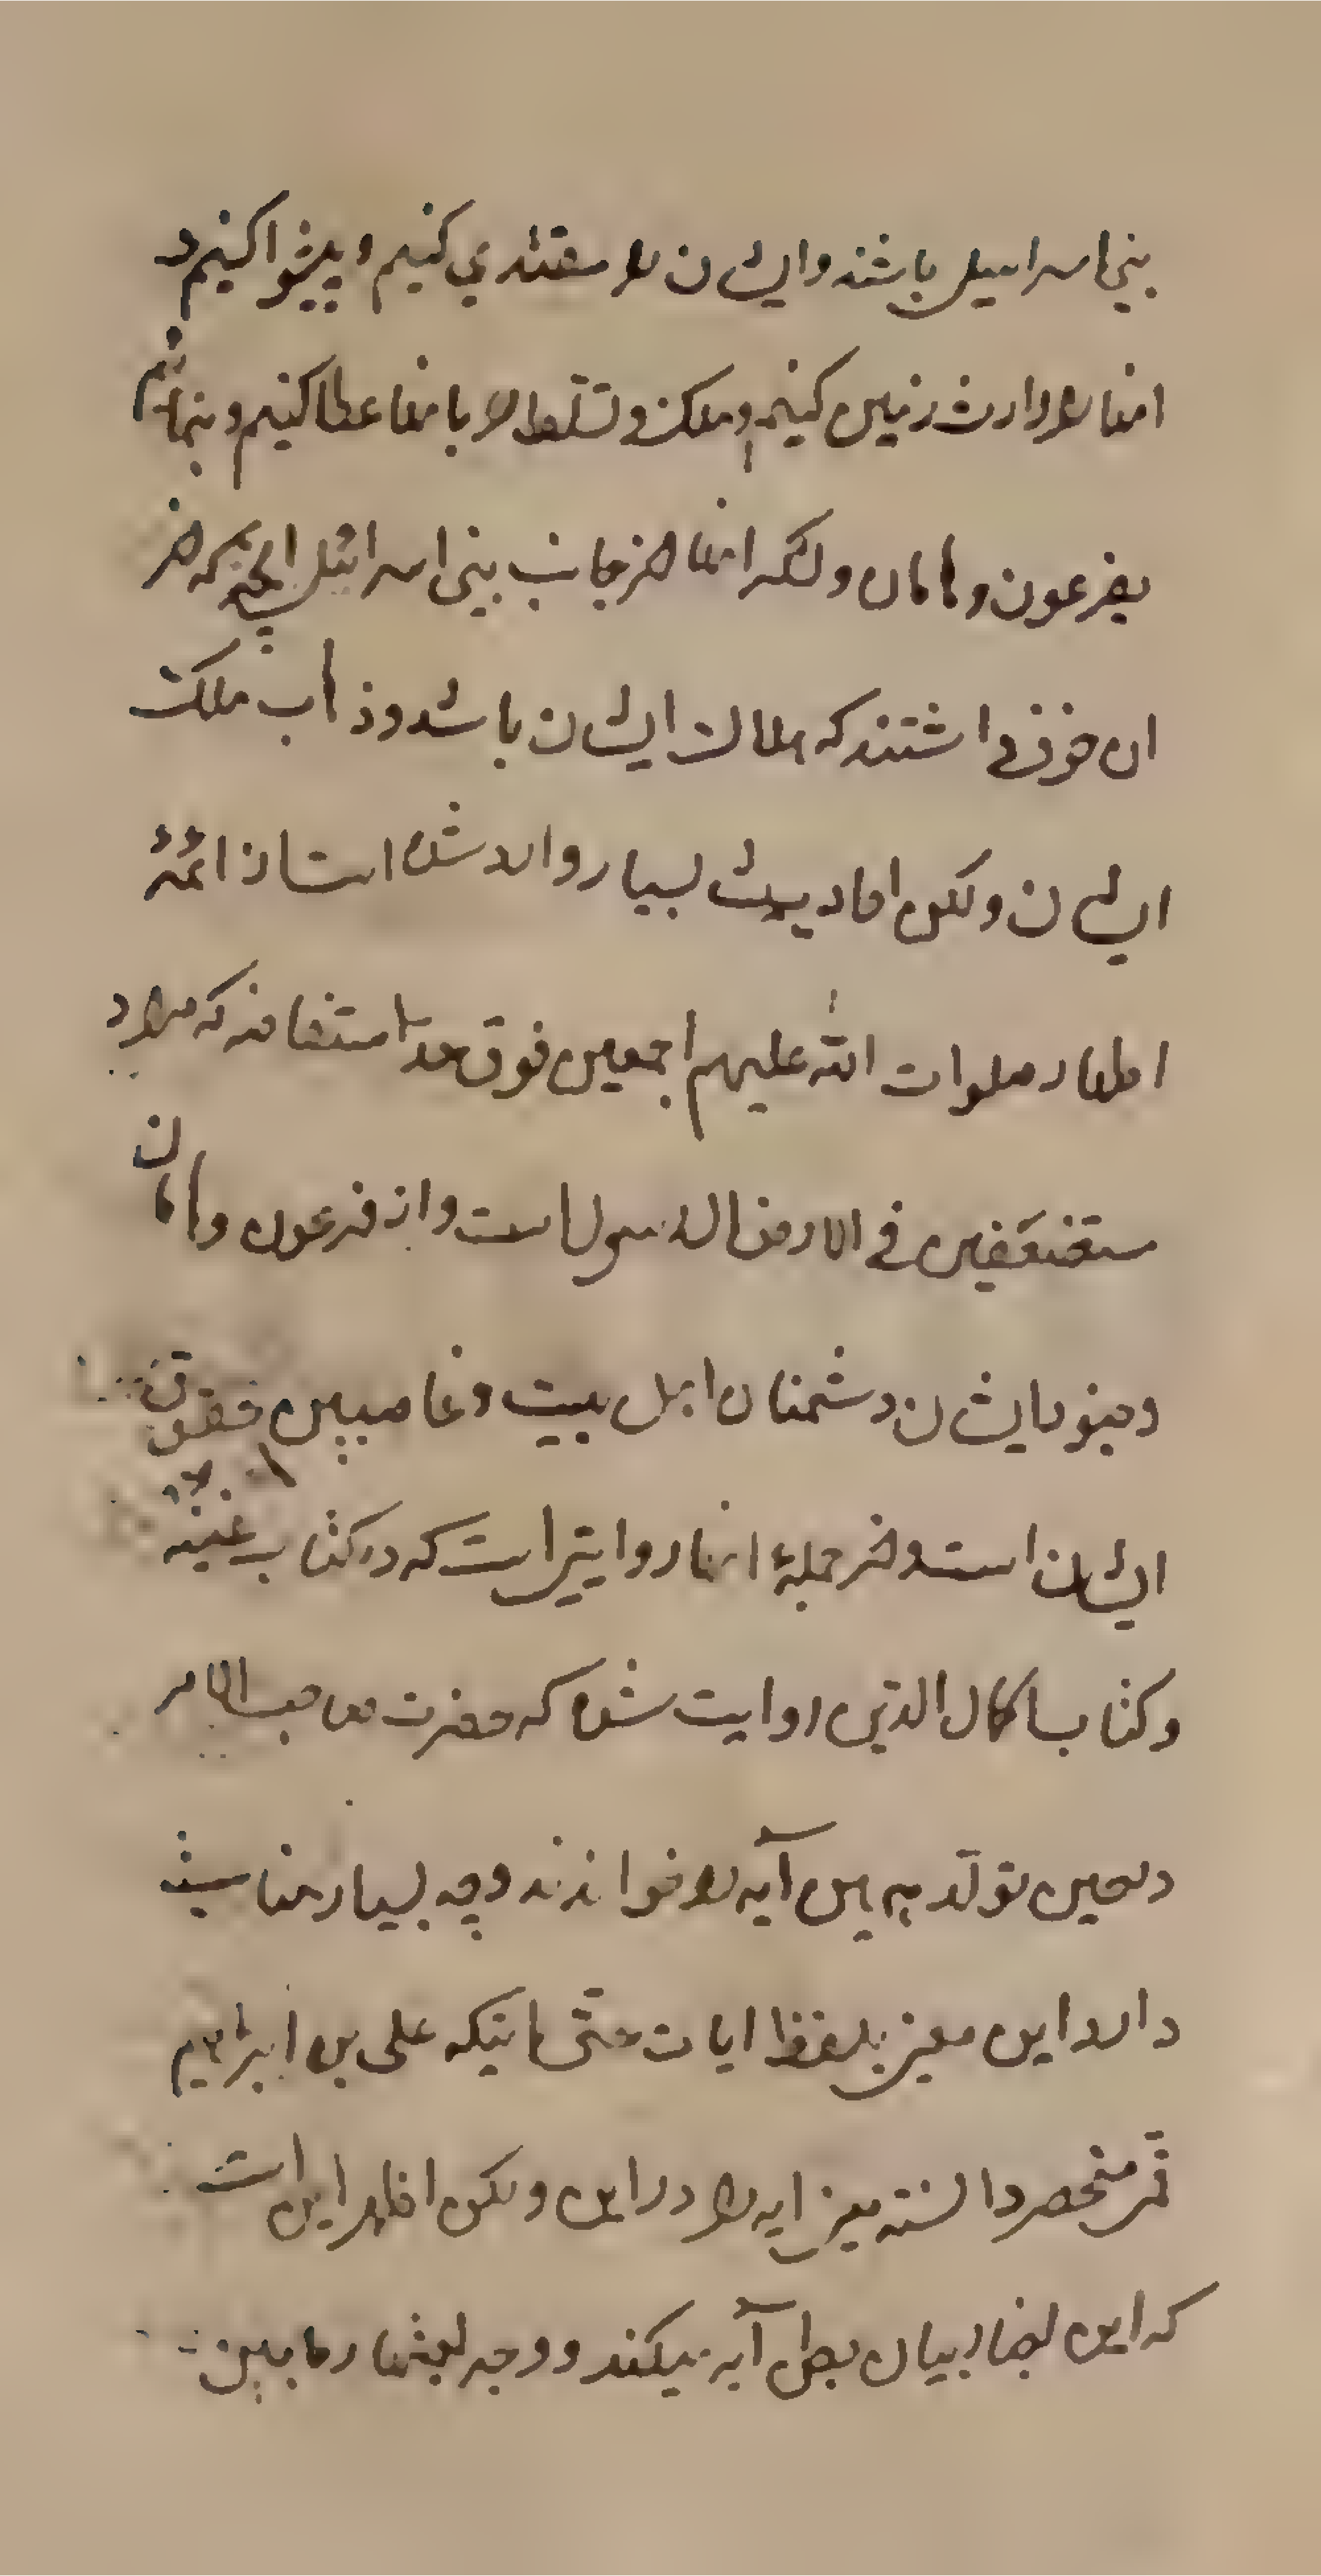 بنی اسرائیل باشند و ایشان را مقتدی کنیم و پیشوا کنیم و
انها را وارث زمین کنیم و ملک و تسلط را بانها عطا کنیم و بنمائیم
بفرعون و هامان و لشکر انها از جانب بنی اسرائیل انچه که از
ان خوف داشتند که هلاک ایشان باشد و ذهاب ملک
ایشان و لکن احادیث بسیار وارد شده است از ائمهٔ
اطهار صلوات الله علیهم اجمعین فوق حد استفاضه که مراد
مستضعفین فی الارض ال رسول است و از فرعون و هامان
و جنود ایشان دشمنان اهل بیت و غاصبین حقوق
ایشان است و از جملهٔ انها روایتی است که در کتاب غیبة
و کتاب اکمال الدین روایت شده که حضرت صاحب الامر
در حین تولد همین آیه را خواندند و چه بسیار مناسبت
دارد این معنی بلفظ ایات حتی اینکه علی بن ابراهیم
قمی منحصر دانسته معنی ایه را در این و لکن اظهر این است
که این اخبار بیان بطن آیه میکند و وجه استظهار ما بین